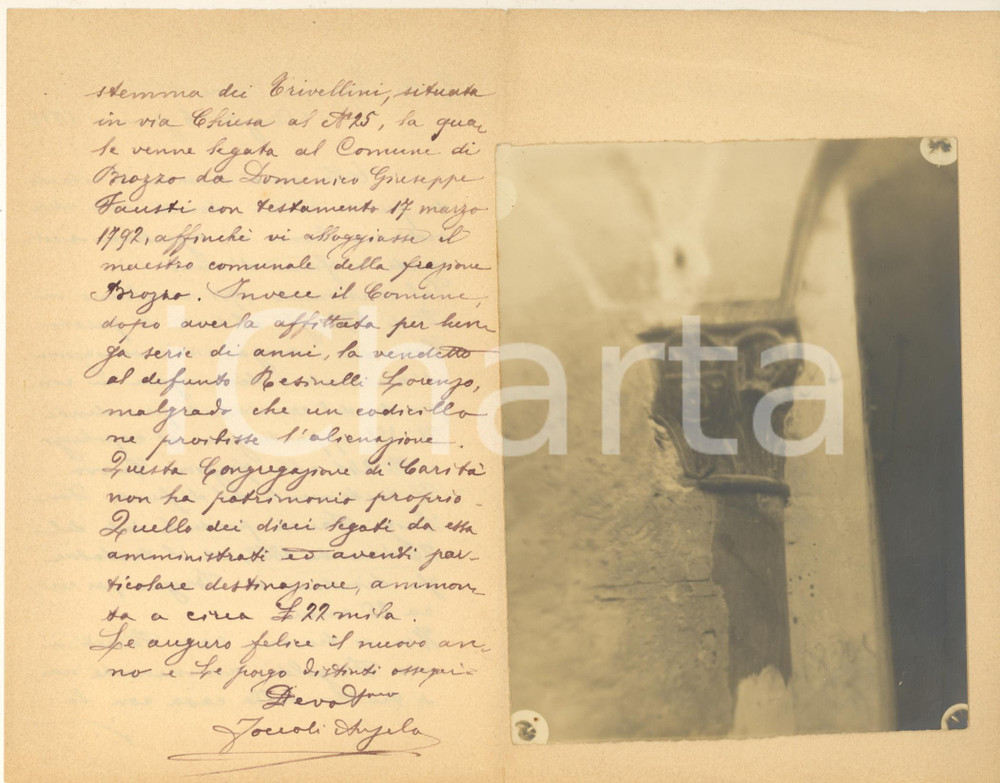 stemma dei Trivellini, situata
in via Chiesa al N° 25, la qua-
le venne legata al Comune di
Brozzo da Domenico Giuseppe
Fausti con testamento 17 marzo
1792, affinchè vi alloggiasse il
maestro comunale della frazione
Brozzo. Invece il Comune,
dopo averla affittata per lun-
ga serie di anni, la vendette
al defunto Resinelli Lorenzo,
malgrado che un codicillo
ne proibisse l'alienazione.
Questa Congregazione di Carità
non ha patrimonio proprio.
Quello dei dieci legati da essa
amministrati ed aventi par-
ticolare destinazione, ammon-
ta a circa £ 22 mila.
Le auguro felice il nuovo an-
no e Le porgo distinti ossequi
Devotmo
Angelo
iCharta